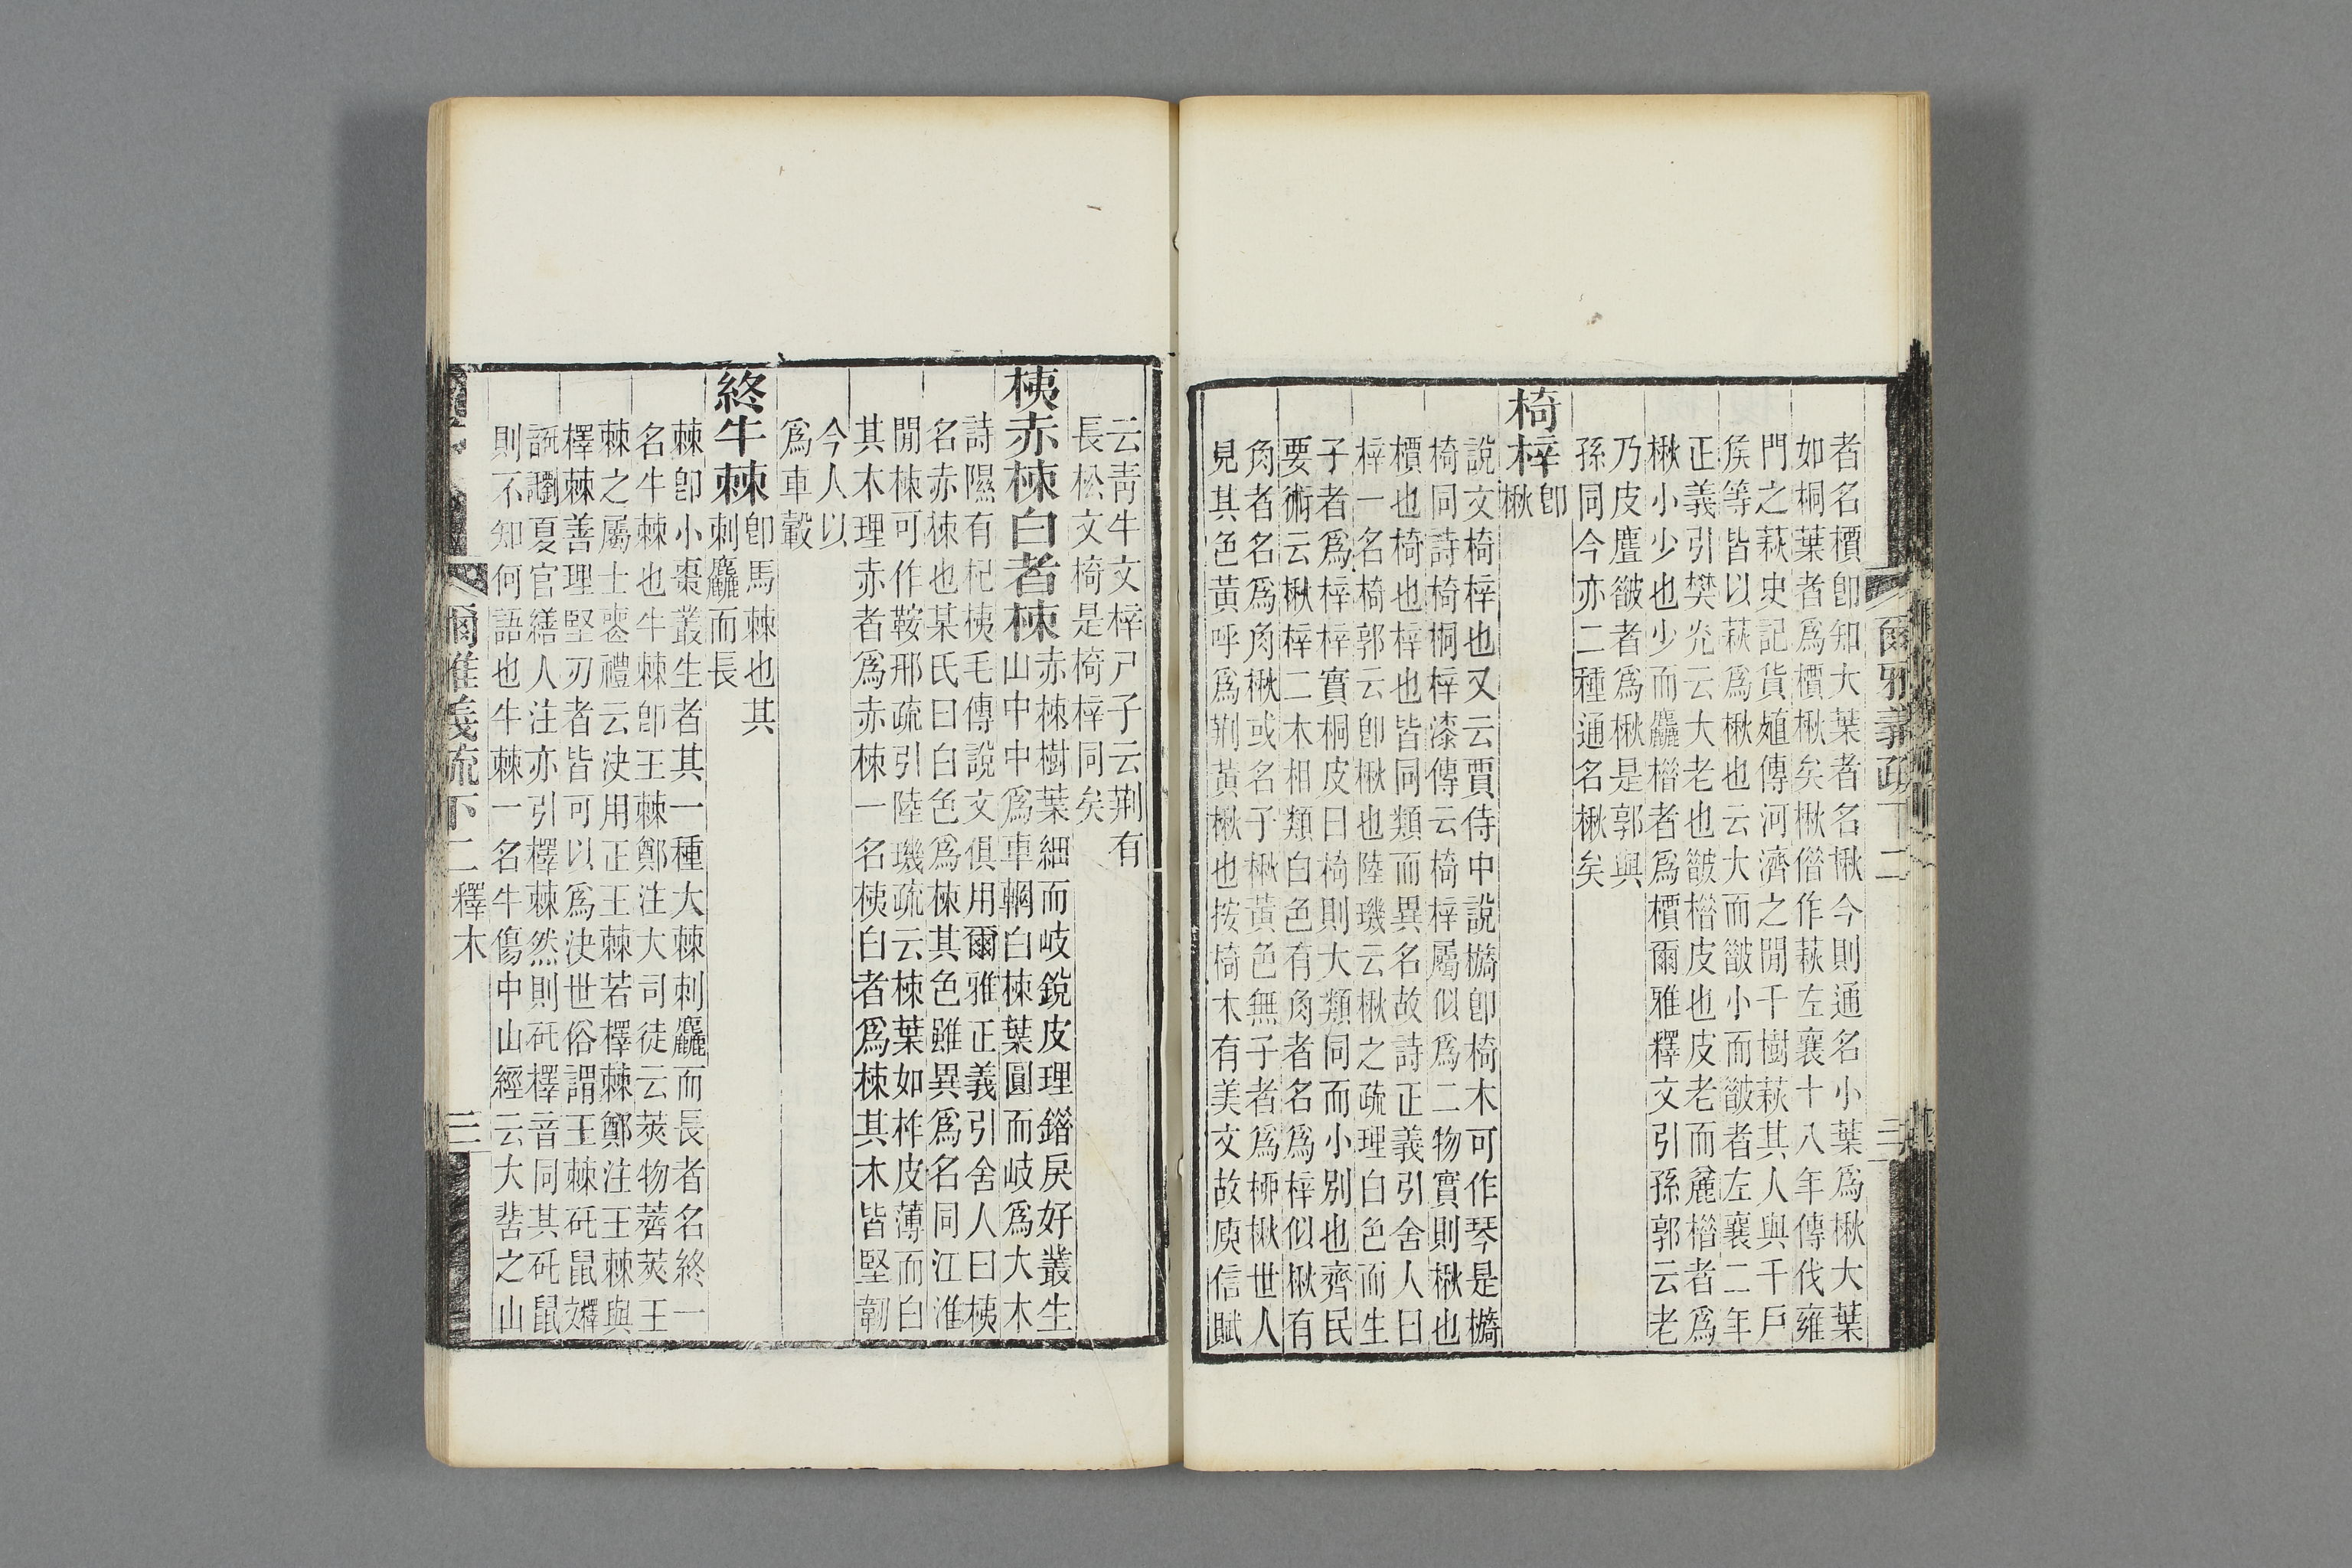 者名檟卽知大葉者名楸今則通名小葉爲楸大葉
如桐葉者爲檟楸矣楸偕作萩左襄十八年傳伐雍
門之萩史記貨殖傳河濟之閒千樹萩其人與千戶
矦等皆以萩爲楸也云大而皵小而皵者左襄二年
正義引樊光云大老也皵楷皮也皮老而麤楷者爲
楸小少也少而麤楷者爲檟爾雅釋文引孫郭云老
乃皮麤皵者爲楸是郭與
孫同今亦二種通名楸矣
椅梓卽楸
說文椅梓也又云賈侍中說檹卽椅木可作琴是檹
椅同詩椅桐梓漆傳云椅梓屬似爲二物實則楸也
檟也椅也梓也皆同類而異名故詩正義引舍人曰
梓一名椅郭云卽楸也陸璣云楸之疏理白色而生
子者爲梓梓實桐皮曰椅則大類同而小別也齊民
要術云楸梓二木相類白色有角者名爲梓似楸有
角者名爲角楸或名子楸黃色無子者爲桺楸世人
見其色黃呼爲荆黃楸也按椅木有美文故庾信賦
爾雅義疏下二
三
云靑牛文梓尸子云荆有
長松文椅是椅梓同矣
桋赤楝白者楝赤楝樹葉細而岐銳皮理錯戾好叢生
山中中爲車輞白楝葉圓而岐爲大木
詩隰有杞桋毛傳說文俱用爾雅正義引舍人曰桋
名赤楝也某氏曰白色爲楝其色雖異爲名同江淮
閒楝可作鞍邢疏引陸璣疏云楝葉如柞皮薄而白
其木理赤者爲赤楝一名桋白者爲楝其木皆堅韌
今人以
爲車轂
終牛棘卽馬棘也其
刺麤而長
棘卽小棗叢生者其一種大棘刺麤而長者名終一
名牛棘也牛棘卽王棘鄭注大司徒云莢物薺莢王
棘之屬士喪禮云決用正王棘若檡棘鄭注王棘與
檡棘善理堅刃者皆可以爲決世俗謂王棘矺鼠釋文
誃謻夏官繕人注亦引檡棘然則矺檡音同其矺鼠
則不知何語也牛棘一名牛傷中山經云大𦵧之山
爾雅義疏下二 釋木
三